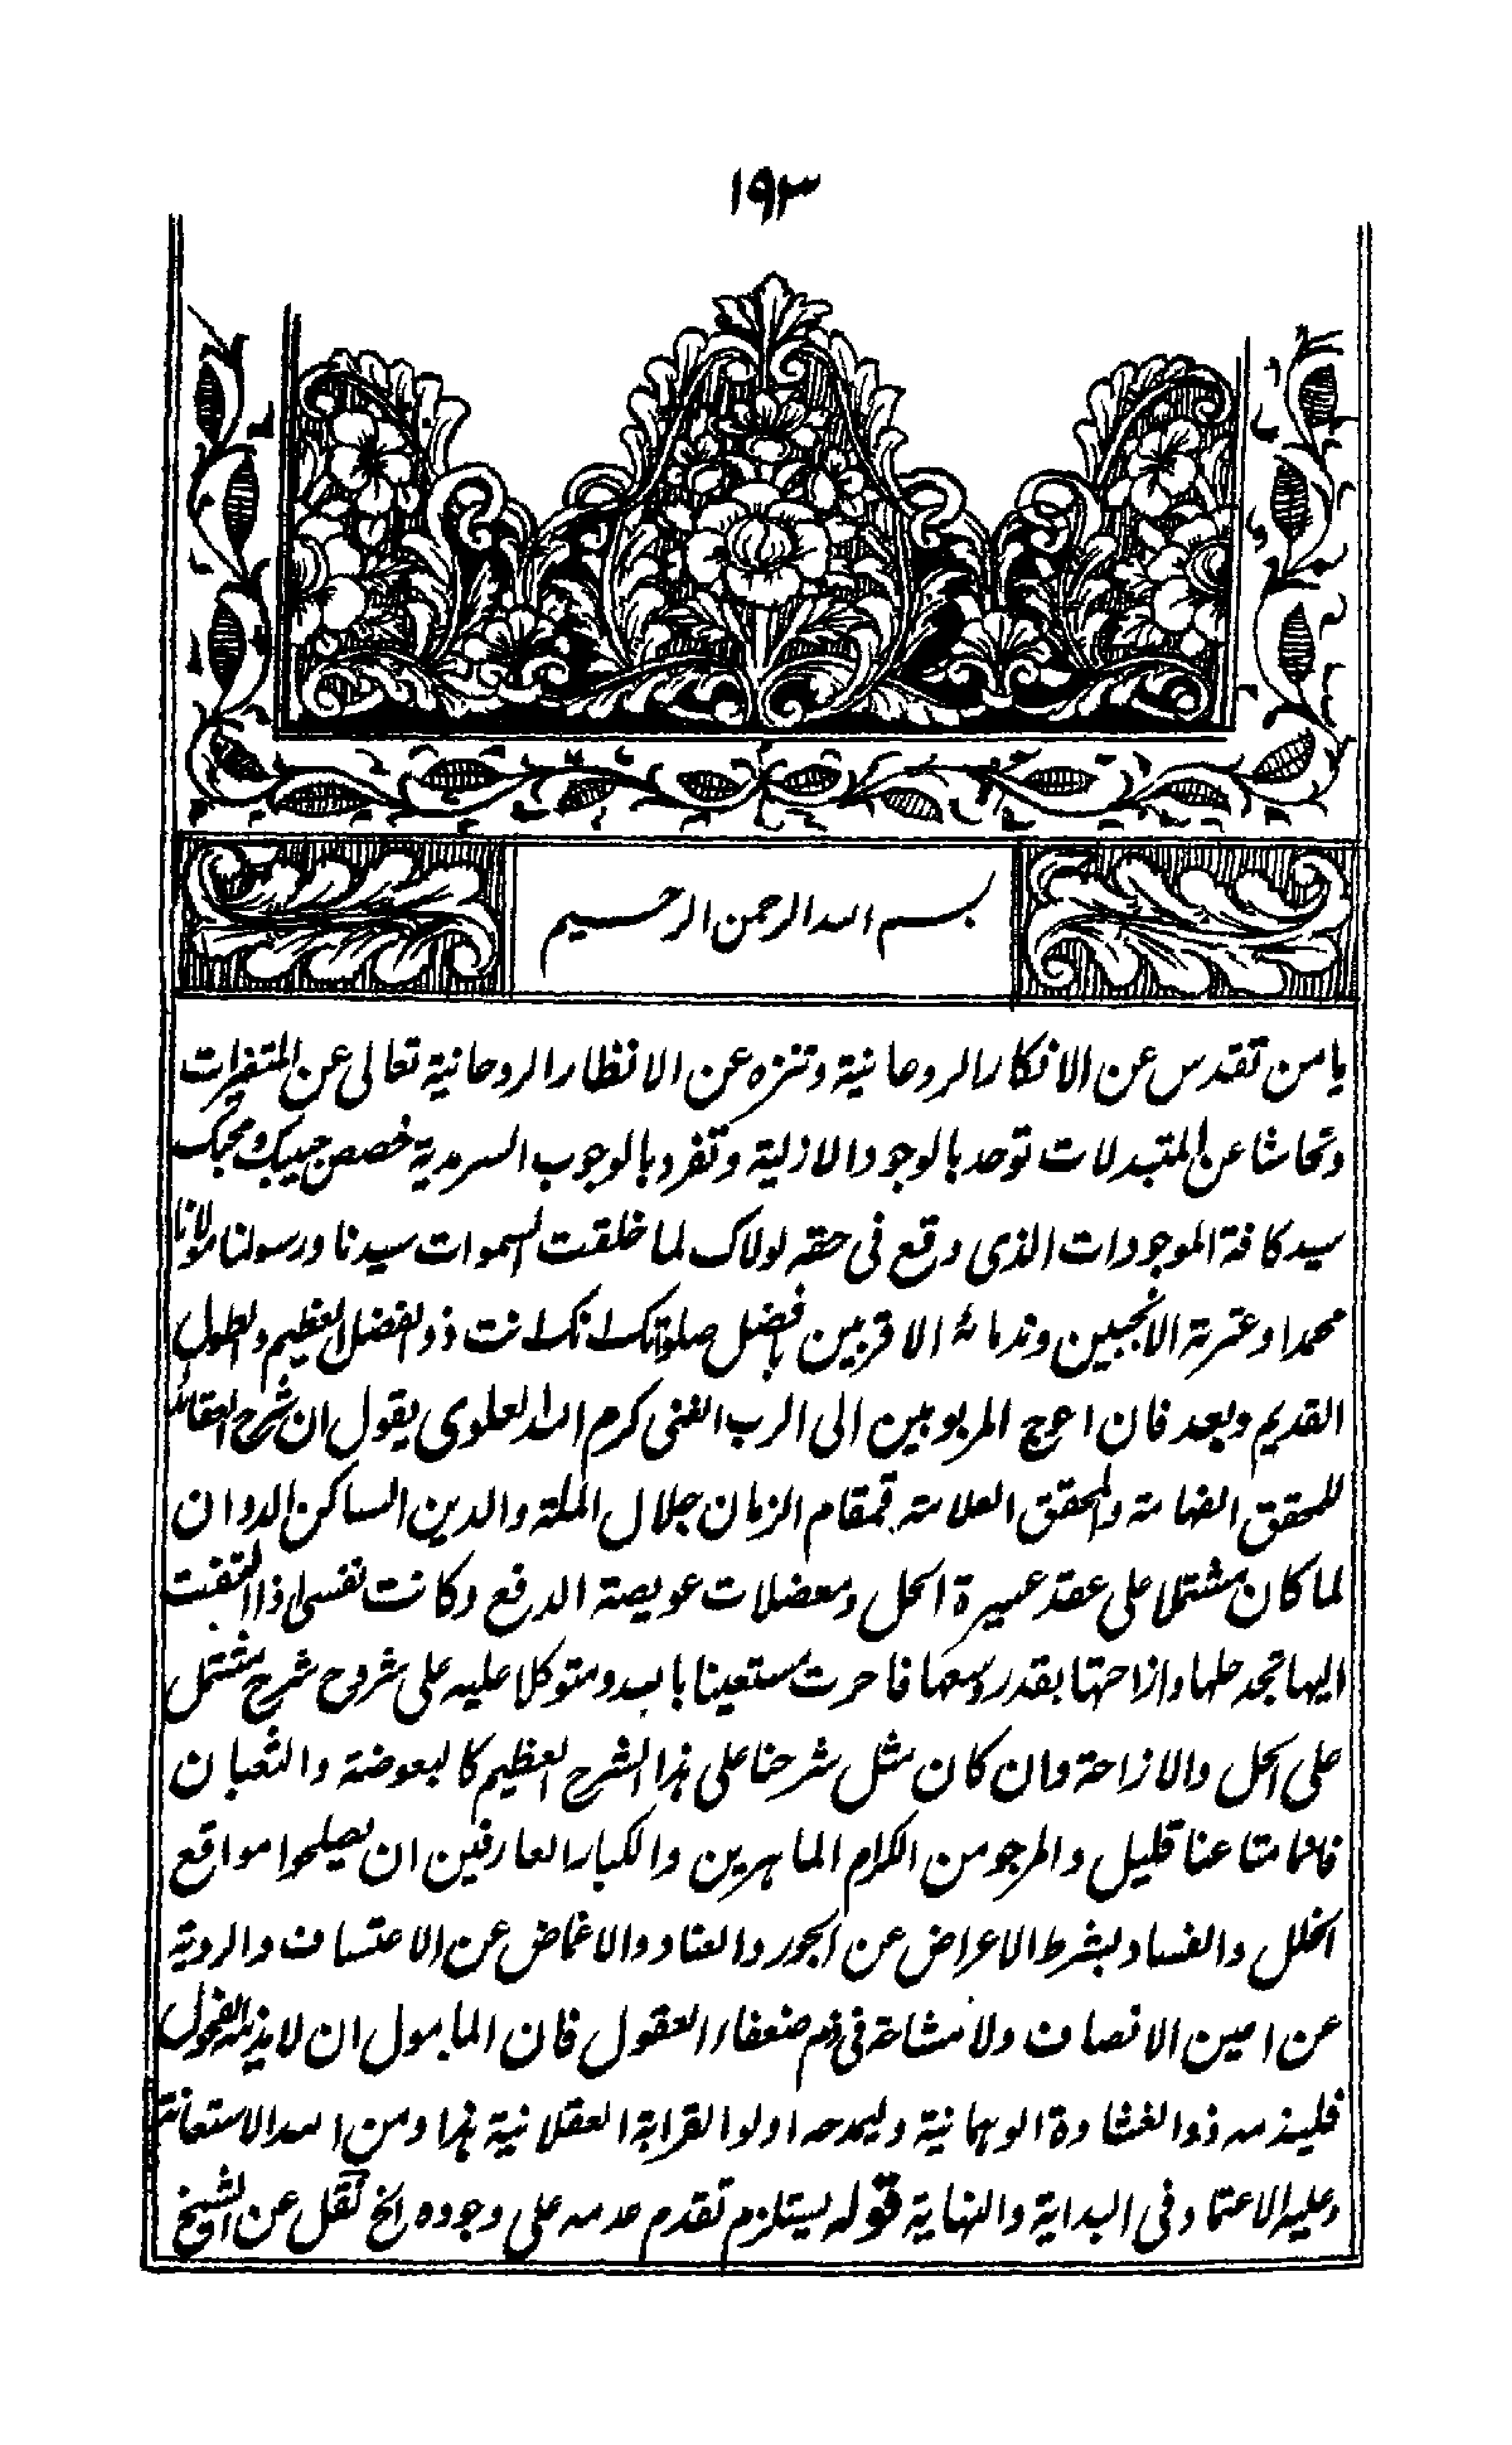 ١٩٣
بسم الله الرحمن الرحيم
يا من تقدس عن الافكار الروحانية وتنزه عن الانظار الروحانية تعالى عن المتغيرات
وتحاشا عن المتبدلات توحد بالوجود الازلية وتفرد بالوجوب السرمدية خصص حبيبك ومحبك
سيد كافة الموجودات الذى وقع فى حقه لولاك لما خلقت السموات سيدنا ورسولنا مولانا
محمدا وعترته الانجبين وندمائه الاقربين بافضل صلوتك انك انت ذو الفضل العظيم والطول
القديم وبعد فان احوج المربوبين الى الرب الغنى كرم الله العلوى يقول ان شرح العقائد
للمحقق الفهامة والمحقق العلامة قمقام الزمان جلال الملة والدين الساكن الدوان
لما كان مشتملا على عقد عسيرة الحل ومعضلات عويصة الدفع وكانت نفسى اذا التفتت
اليها تجد حلها وازاحتها بقدر وسعها فاحرت مستعينا بالله ومتوكلا عليه على شروح شرح مشتمل
على الحل والازاحة وان كان مثل شرحنا على هذا الشرح العظيم كالبعوضة والثعبان
فانما متاعنا قليل والمرجو من الكرام الماهرين والكبار العارفين ان يصلحوا مواقع
الخلل والفساد بشرط الاعراض عن الجور والعناد والاغماض عن الاعتساف والروية
عن امين الانصاف ولا مشاحة فى ذم ضعفاء العقول فان المامول ان لا يذمه الفحول
فليذمه ذوا الغشاوة الوهمانية وليمدحه اولوا القرابة العقلانية هذا ومن الله الاستعانة
وعليه الاعتماد فى البداية والنهاية قوله يستلزم تقدم عدمه على وجوده الخ نقل عن الشيخ